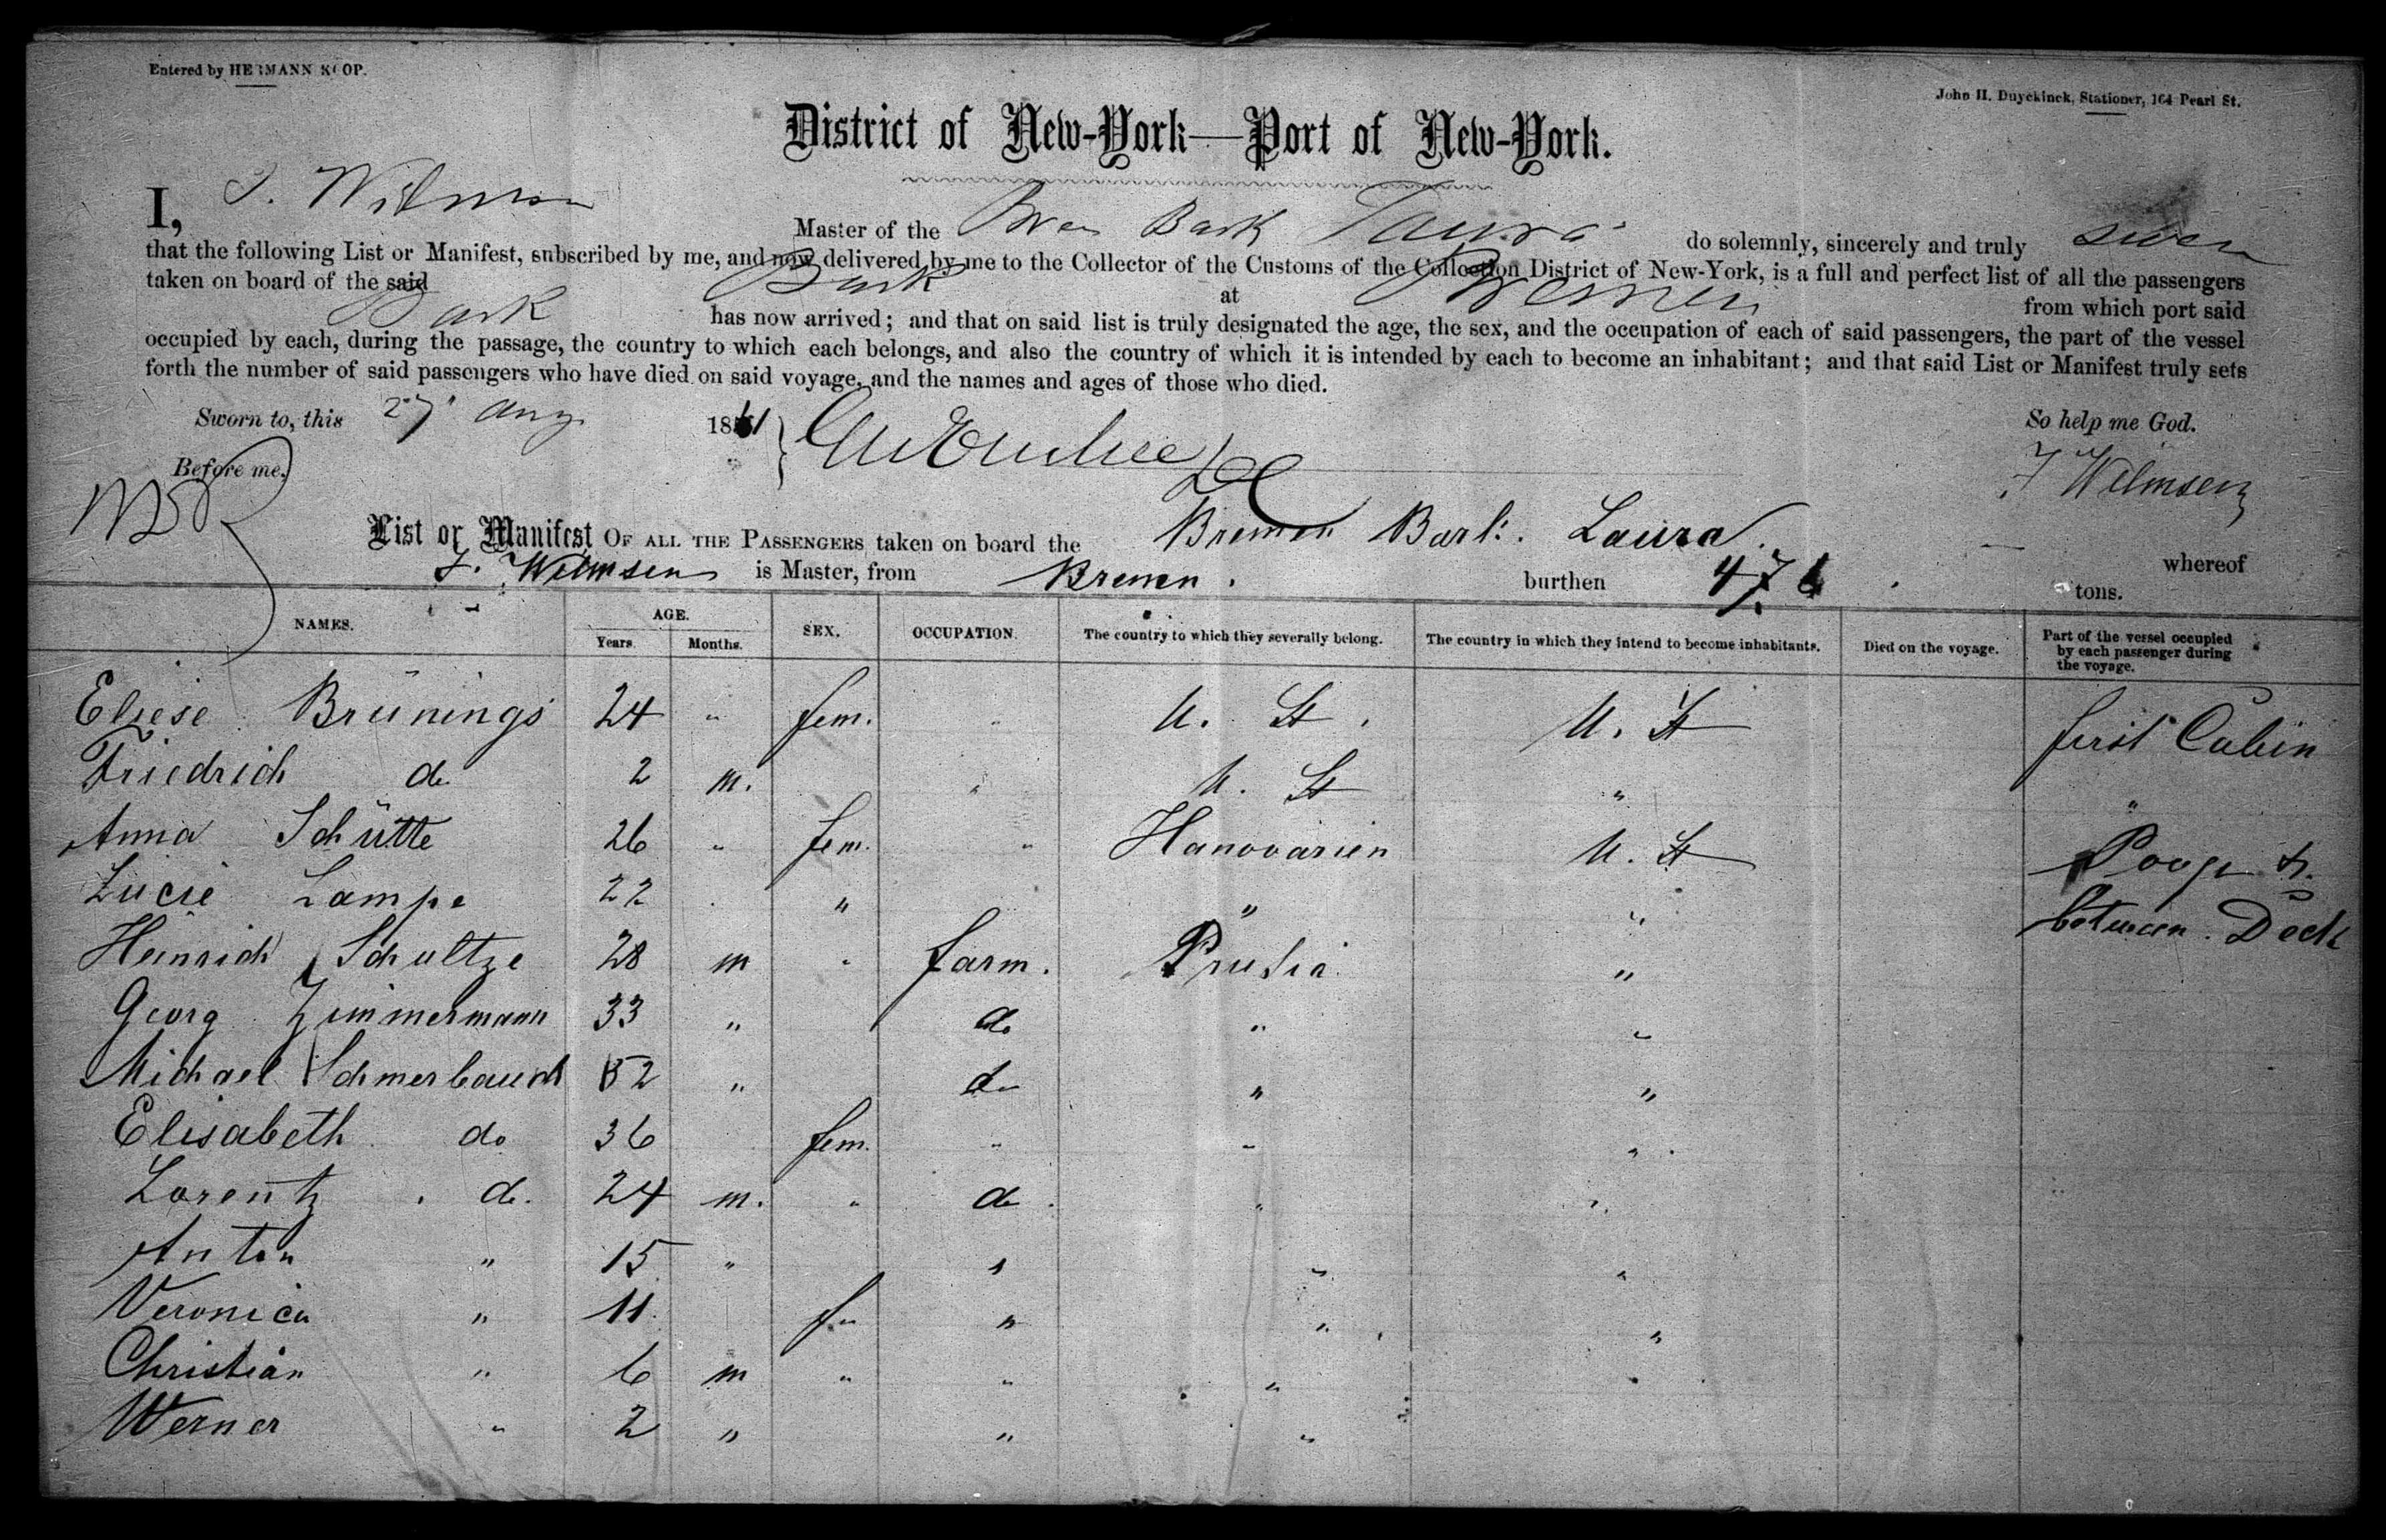 Entered by HERMANN KOOP.
John H. Duyckinck, Stationer, 164 Pearl St.
District of New-York—Port of New-York.
I, Master of the Bark Laura do solemnly, sincerely and truly swear
that the following List or Manifest, subscribed by me, and now delivered by me to the Collector of the Customs of the Collection District of New-York, is a full and perfect list of all the passengers
taken on board of the said Bark at Bremen from which port said
Bark has now arrived; and that on said list is truly designated the age, the sex, and the occupation of each of said passengers, the part of the vessel
occupied by each, during the passage, the country to which each belongs, and also the country of which it is intended by each to become an inhabitant; and that said List or Manifest truly sets
forth the number of said passengers who have died on said voyage, and the names and ages of those who died.
Sworn to, this 27 Aug 1861 So help me God.
Before me, F Wilmsen
List or Manifest OF ALL THE PASSENGERS taken on board the Bremen Bark: Laura whereof
F. Wilmsen is Master, from Bremen. burthen 476 tons.
NAMES. AGE. Years. Months. SEX. OCCUPATION. The country to which they severally belong. The country in which they intend to become inhabitants. Died on the voyage. Part of the vessel occupied by each passenger during the voyage.
Eliese Brünings 24 " fem. " U. St. U. St first Cabin
Friedrich do 2 m. " U. St " "
Anna Schütte 26 " fem. " Hanovarien U. St
Lucie Lampe 22 " " " between Deck
Heinrich Schultze 28 m " farm. Prusia "
Georg Zimmermann 33 " do " "
Michael Schmerbauch 52 " do " "
Elisabeth do 36 fem. " " "
Lorentz do. 24 m. " do " "
Anton " 15 " " " "
Veronica " 11 f " " " "
Christian " 6 m " " "
Werner " 2 " " "